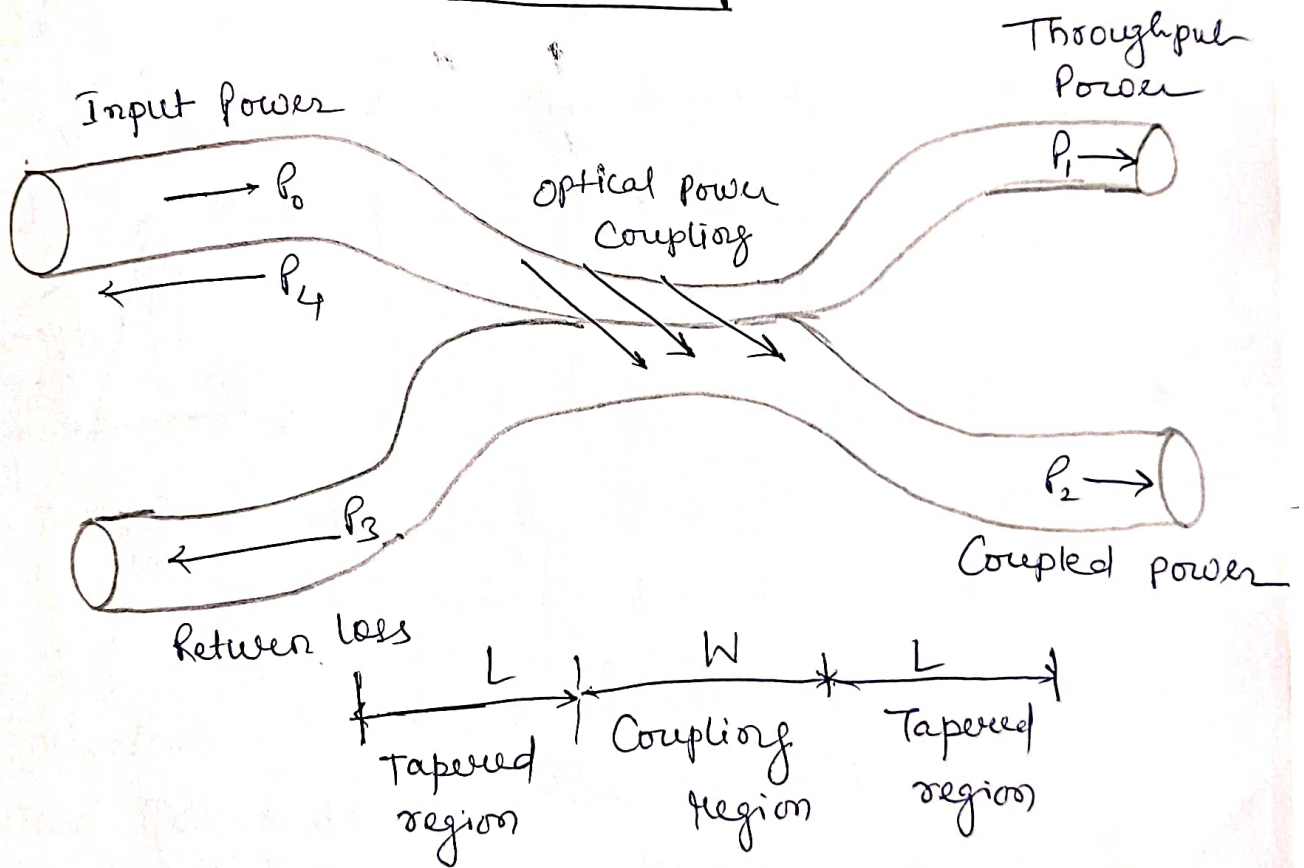 Input Power
Throughput
Power
P₀
P₁
Optical Power
Coupling
P₄
P₂
P₃
Coupled power
Return loss
L
W
L
Tapered
region
Coupling
region
Tapered
region